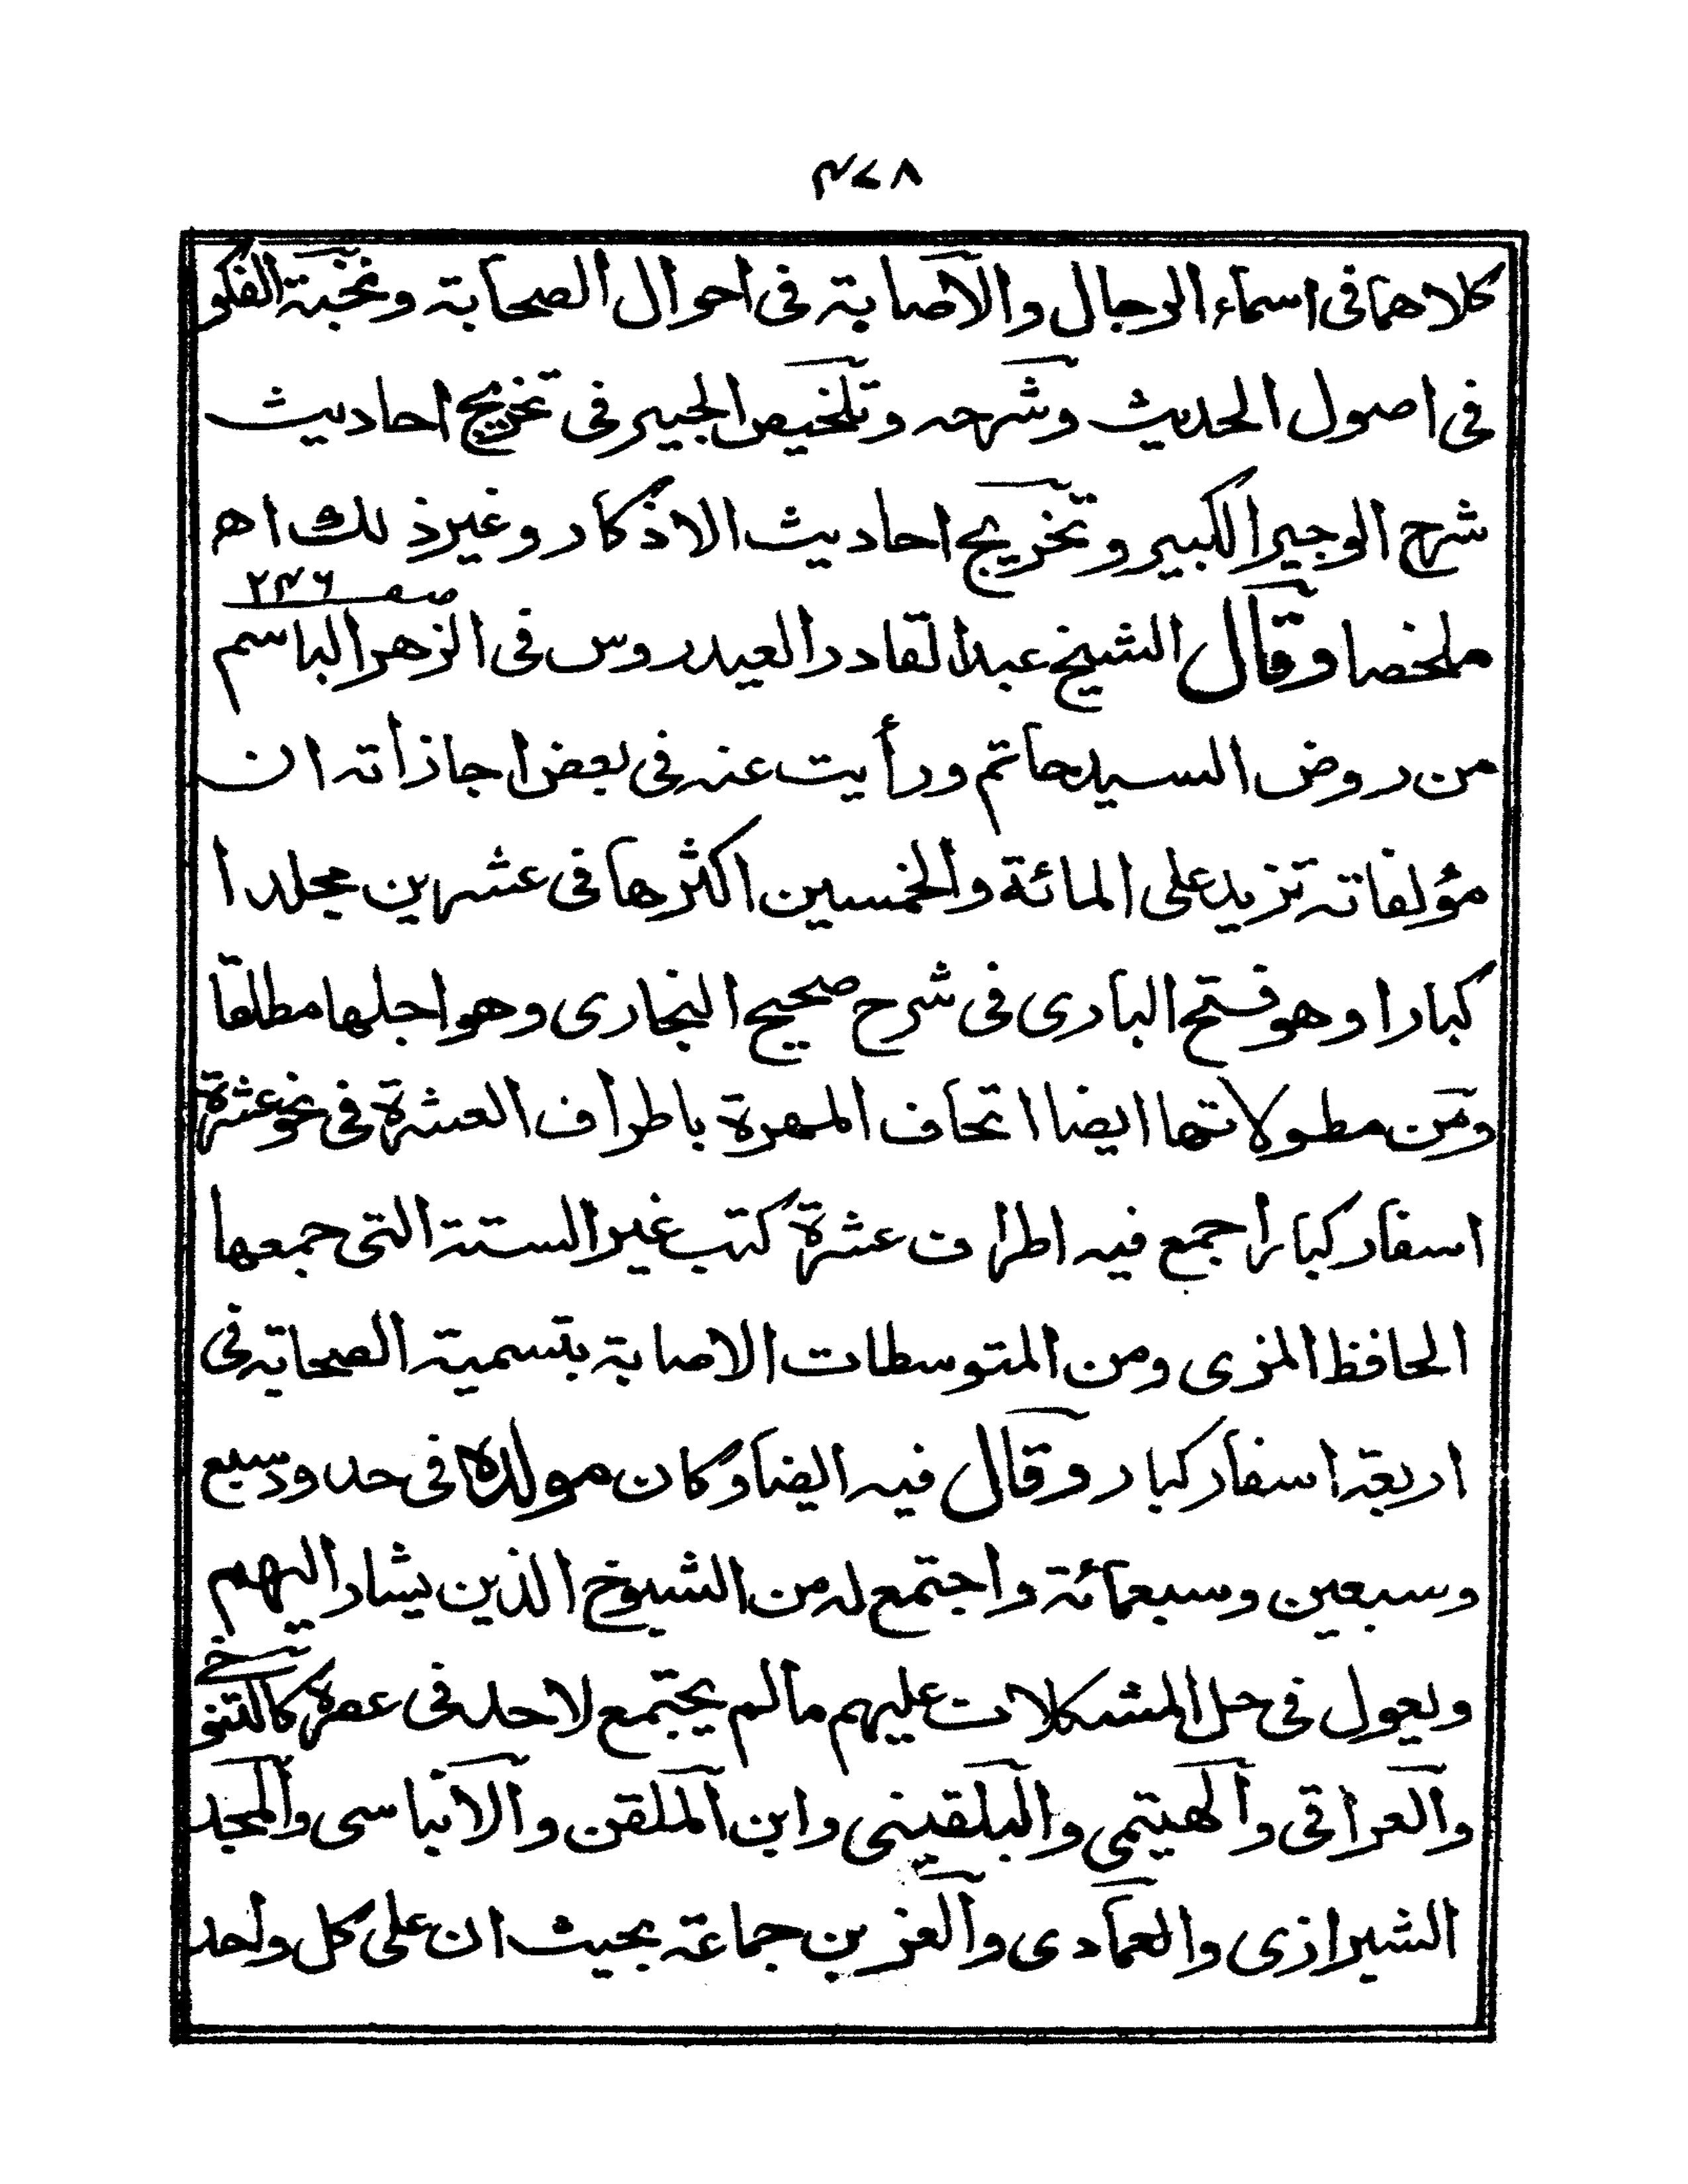 ۴۷۸
كلاهما فى اسماء الرجال والاصابة فى احوال الصحابة ونخبة الفكر
فى اصول الحديث وشرحه وتلخيص الجبير فى تخريج احاديث
شرح الوجيز الكبير وتخريج احاديث الاذكار وغير ذلك اھ
صفہ ٢٣٦
ملخصا وقال الشيخ عبد القادر العيدروس فى الزهر الباسم
من روض السيد حاتم ورأيت عنه فى بعض اجازاته ان
مؤلفاته تزيد على المائة والخمسين اكثرها فى عشرين مجلدا
كبارا وهو فتح البارى فى شرح صحيح البخارى وهو اجلها مطلقا
ومن مطولاتها ايضا اتحاف المهرة باطراف العشرة فى نحو عشرة
اسفار كبارا جمع فيه اطراف عشرة كتب غير الستة التى جمعها
الحافظ المزى ومن المتوسطات الاصابة بتسمية الصحابة فى
اربعة اسفار كبار وقال فيه ايضا وكان مولده فى حدود سبع
وسبعين وسبعمائة واجتمع له من الشيوخ الذين يشار اليهم
ويعول فى حل المشكلات عليهم مالم يجتمع لاحد فى عصره كالتنوخى
والعراقى والهيتمى والبلقينى وابن الملقن والانباسى والمجد
الشيرازى والعمادى والعز بن جماعة بحيث ان على كل واحد